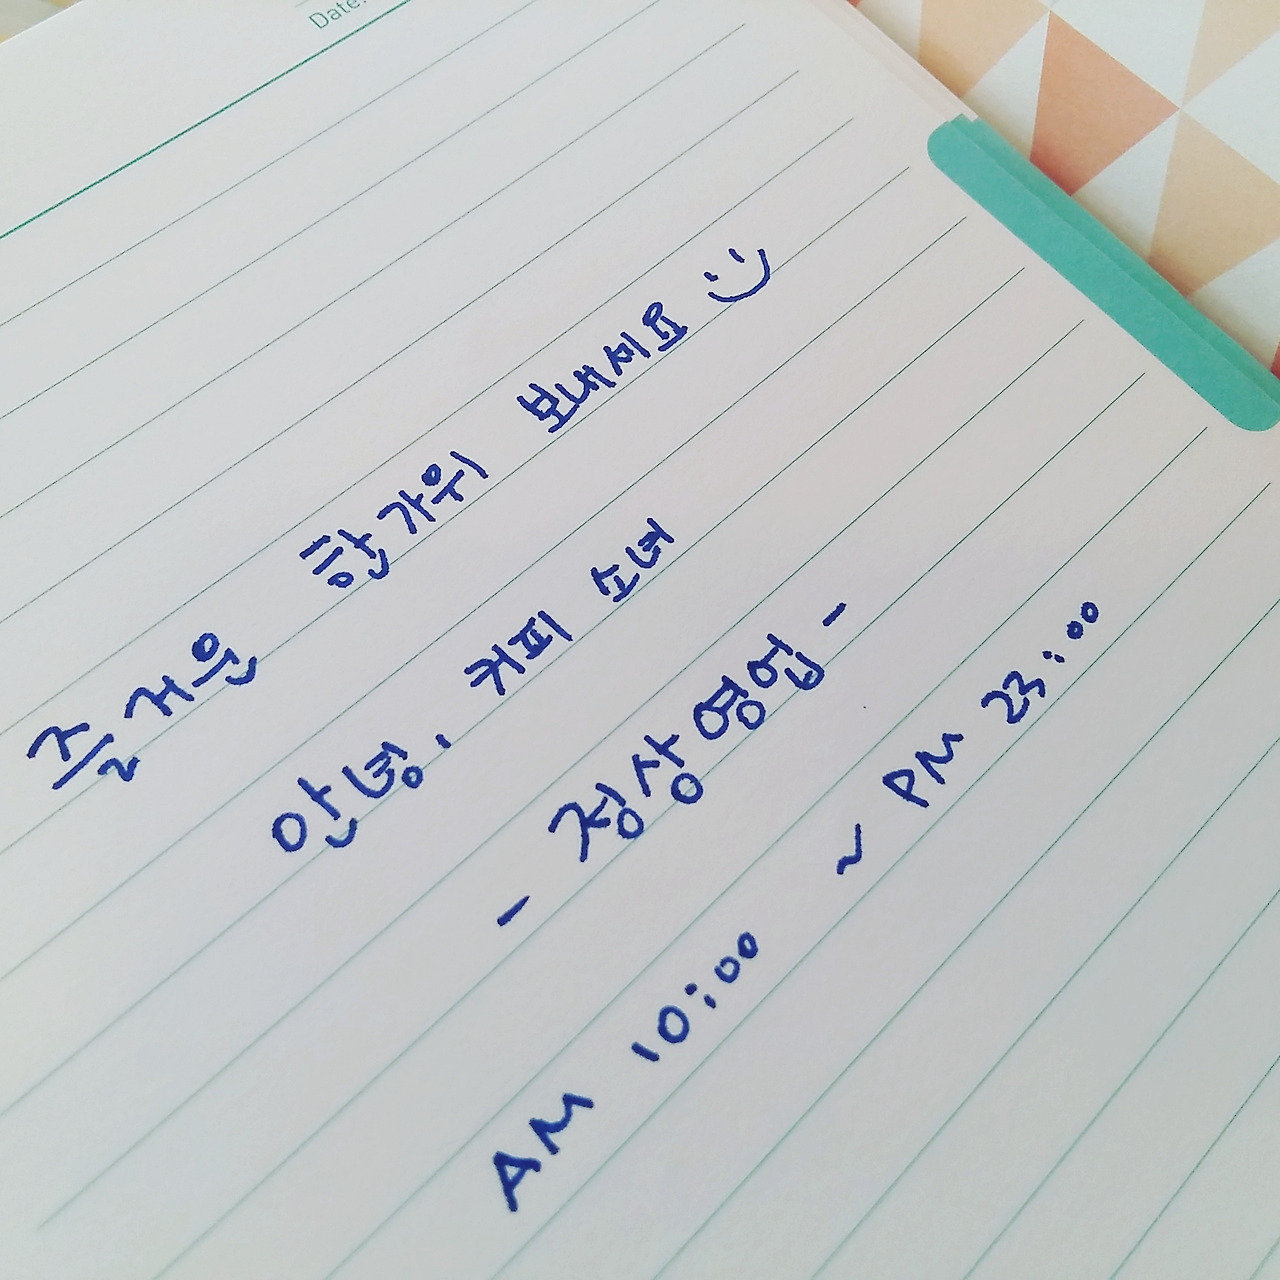 Date.
즐거운 한가위 보내세요
안녕, 커피 소녀
- 정상영업 -
AM 10:00 ~ PM 23:00